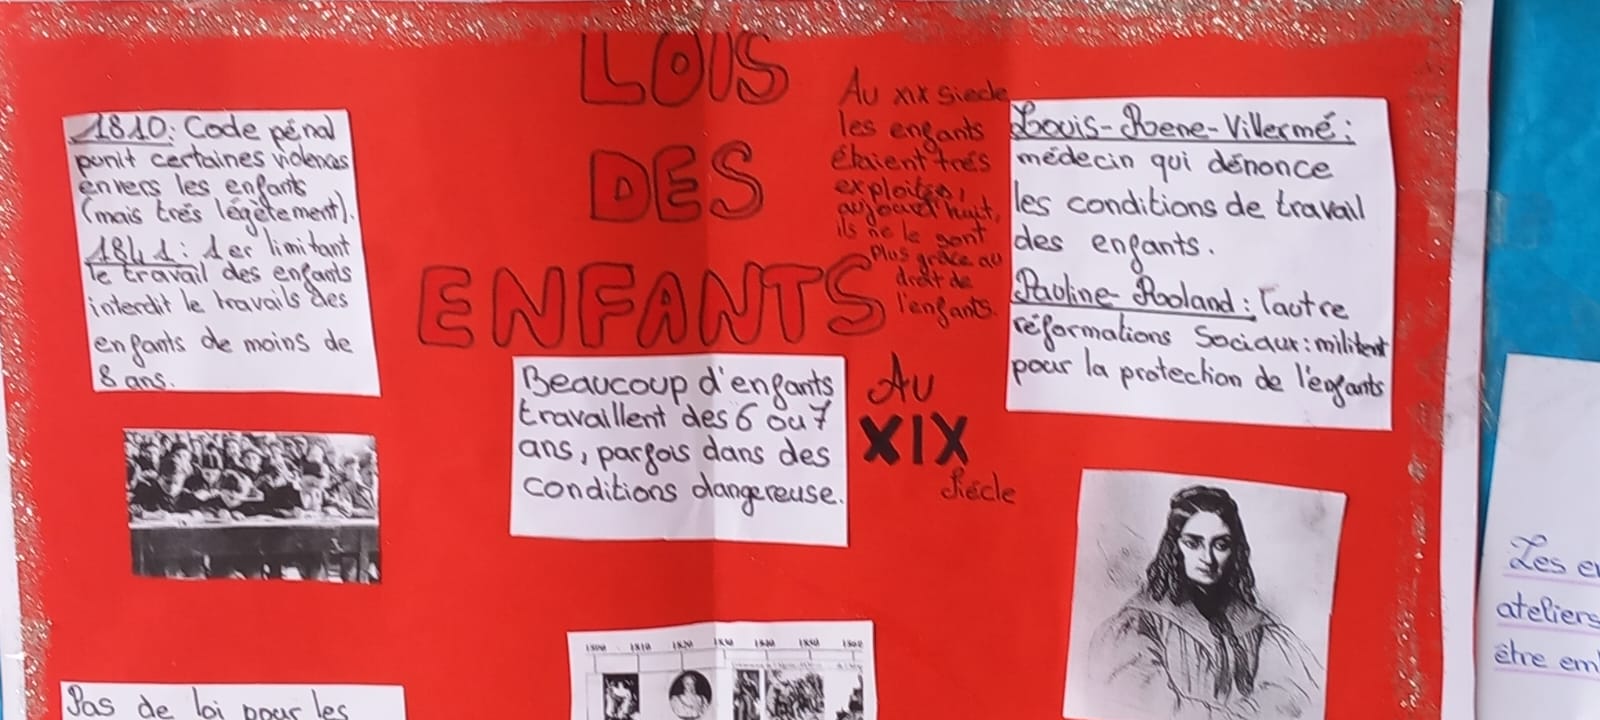 LOIS
DES
ENFANTS
Au XIX
siècle
Au XIX siecle
les enfants
étaient trés
exploités,
aujourd'huit,
ils ne le sont
plus grâce au
droit de
l'enfants.
1810: Code pénal
punit certaines violences
envers les enfants
(mais trés légètement).
1841: 1er limitant
le travail des enfants
interdit le travails des
enfants de moins de
8 ans.
Beaucoup d'enfants
travaillent des 6 ou 7
ans, parfois dans des
conditions dangereuse.
Louis-Rene-Villermé:
médecin qui dénonce
les conditions de travail
des enfants.
Pauline-Rooland: l'autre
réformations Sociaux: militent
pour la protection de l'enfants
Pas de loi pour les
1800 1810 1820
Les en
ateliers
être em